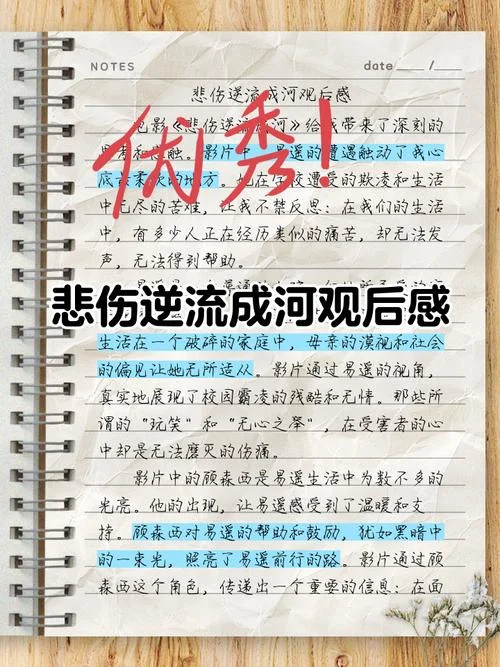 NOTES
date ___ / ___
悲伤逆流成河观后感
电影《悲伤逆流成河》给我带来了深刻的
思考和感触。影片中,易遥的遭遇触动了我心
底最柔软的地方。她在学校遭受的欺凌和生活
中无尽的苦难,让我不禁反思:在我们的生活
中,有多少人正在经历类似的痛苦,却无法发
声,无法得到帮助。
优秀!
悲伤逆流成河观后感
生活在一个破碎的家庭中,母亲的漠视和社会
的偏见让她无所适从。影片通过易遥的视角,
真实地展现了校园霸凌的残酷和无情。那些所
谓的"玩笑"和"无心之举",在受害者的心
中却是无法磨灭的伤痛。
影片中的顾森西是易遥生活中为数不多的
光亮。他的出现,让易遥感受到了温暖和支
持。顾森西对易遥的帮助和鼓励,犹如黑暗中
的一束光,照亮了易遥前行的路。影片通过顾
森西这个角色,传递出一个重要的信息:在面